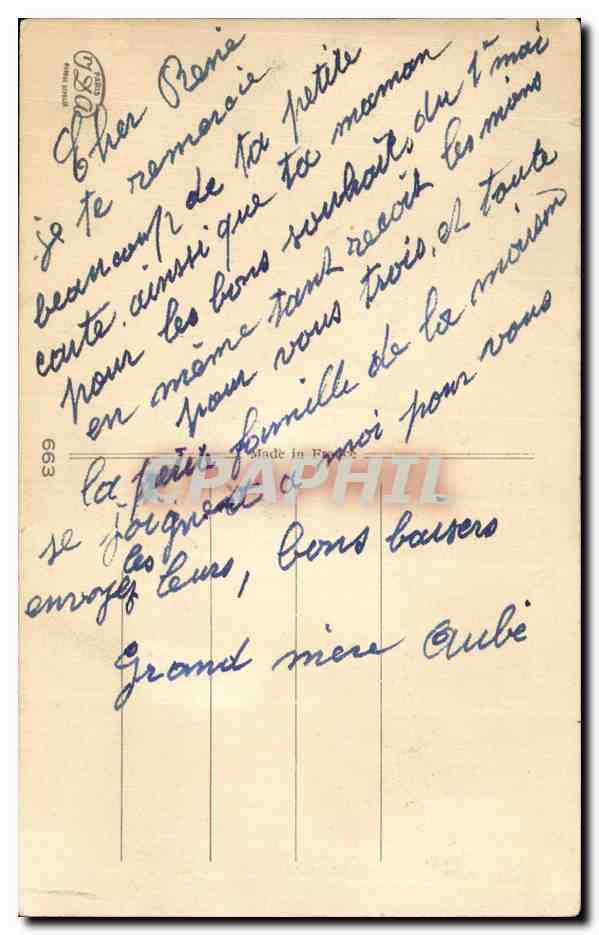 Cher René
je te remercie
beaucoup de ta petite
carte. ainssi que ta maman
pour les bons souhait, du 1er mai
en même tant recoit les miens
pour vous trois, et toute
la petite famille de la maison
se joignent a moi pour vous
envoyez les leurs, bons baisers
Grand mère Aubé
663
Made in France
CPAPHIL
PARIS